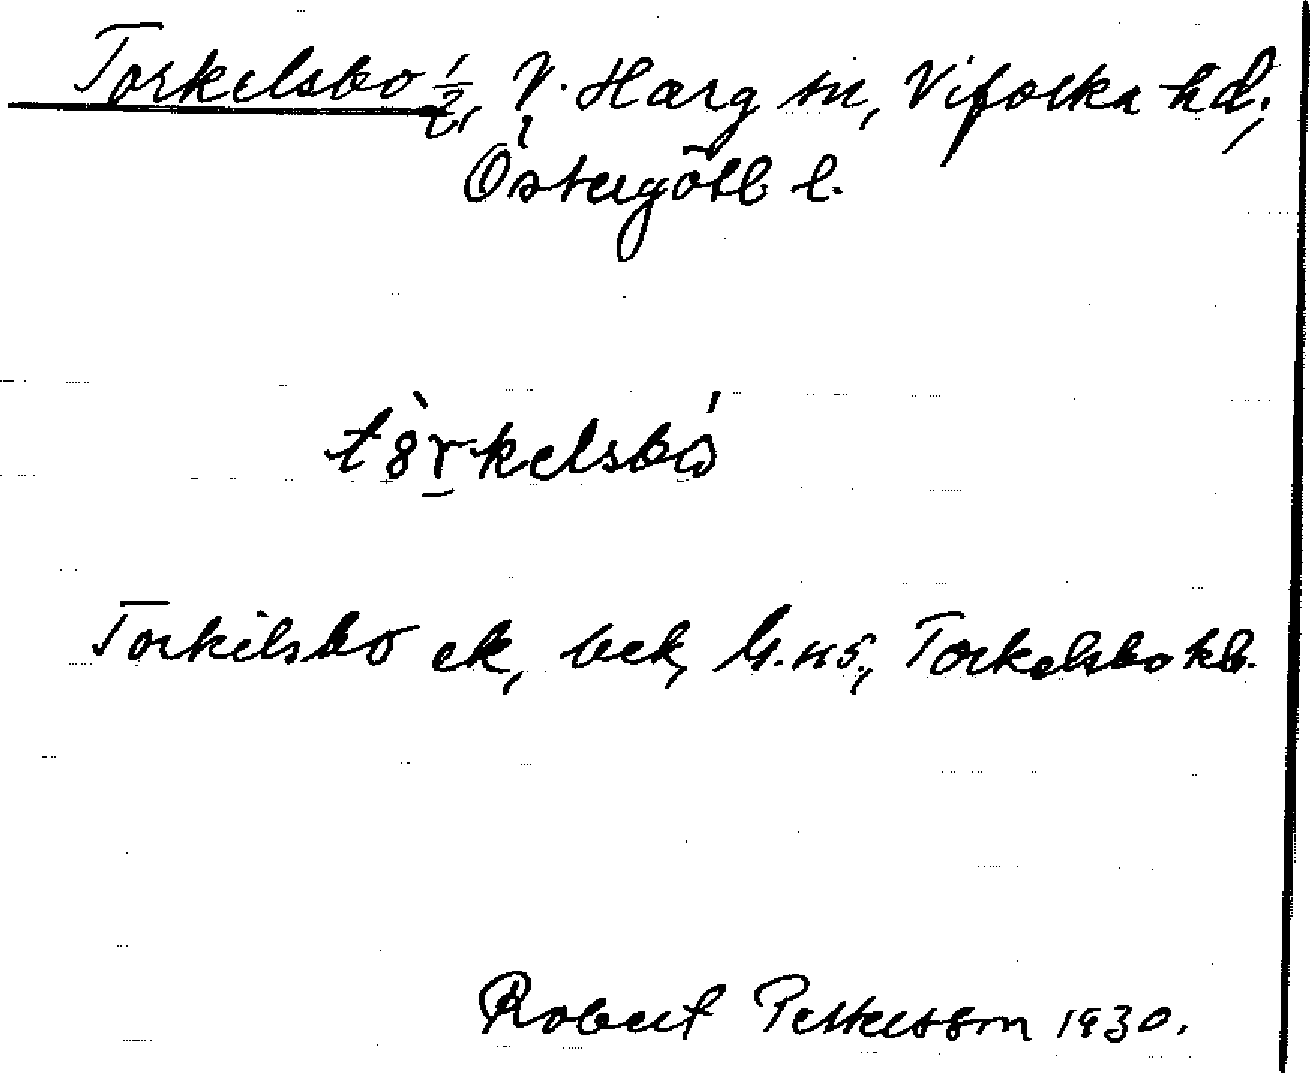 Torkelsbo 1/2, V. Harg sn, Vifolka hd,
Östergötl l.
tòrkelsbó
Torkilsbo ek, bek, G.ks., Torkelsbo kb.
Robert Pettersson 1930.